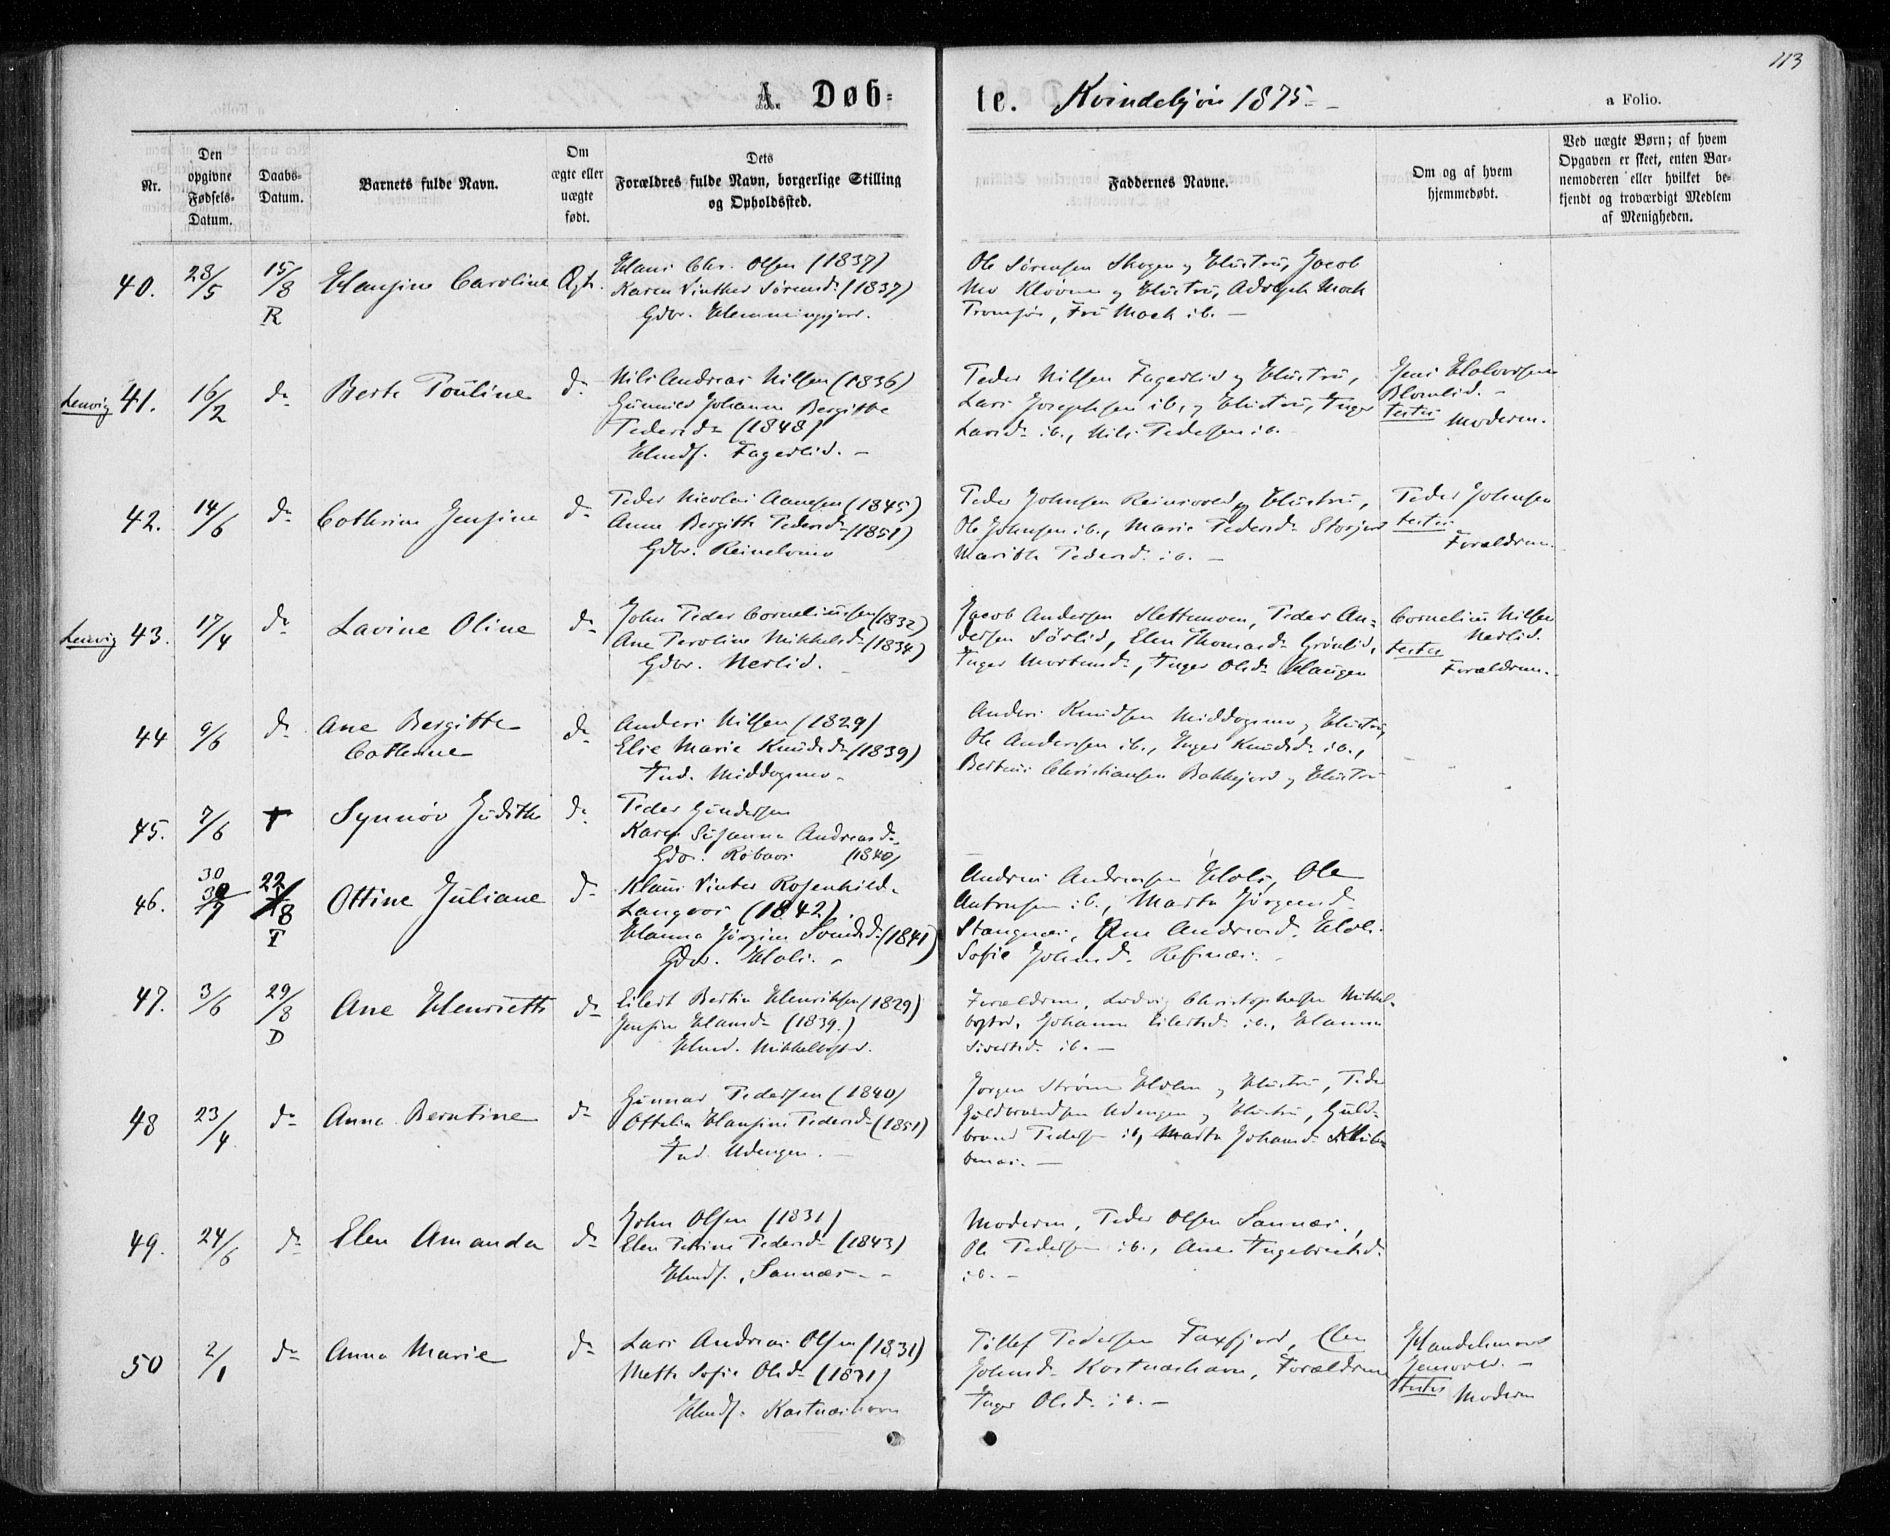 113
A. Døb=
te. Kvindekjøn 1875.
a Folio.
Nr.
Den opgivne Fødsels-Datum.
Daabs-Datum.
Barnets fulde Navn.
Om ægte eller uægte født.
Dets Forældres fulde Navn, borgerlige Stilling og Opholdssted.
Faddernes Navne.
Om og af hvem hjemmedøbt.
Ved uægte Børn; af hvem Opgaven er skeet, enten Barnemoderen eller hvilket bekjendt og troværdigt Medlem af Menigheden.
40. 28/5 15/8 R Hansine Caroline Ægt.
Hans Chr. Olsen (1837)
Karen Vinther Sørensd. (1837)
Gdbr. Hemmingsjord.
Ole Sørensen Skogen og Hustru, Jacob
Mo Kløven og Hustru, Adolph Mack
Tromsø, Fru Mack ib. —
Lenvig 41. 16/2 do Berte Pouline do
Nils Andreas Nilsen (1836)
Gunnild Johanna Bergitte
Pedersd. (1848)
Husmd. Fagerlid. —
Peder Nilsen Fagerlid og Hustru,
Lars Josephsen ib. og Hustru, Inger
Larsd. ib., Nils Pedersen ib.
Jens Halvorsen
Blomlid. —
testes
Moderen.
42. 14/6 do Cathrine Jensine do
Peder Nicolai Aanesen (1845)
Anne Bergitte Pedersd. (1851)
Gdbr. Reinelvmo
Peder Johnsen Reinsvold og Hustru,
Ole Johnsen ib., Marie Pedersd. Storjord
Marith Pedersd. ib. —
Peder Johnsen
testes
Forældrene.
Lenvig 43. 17/4 do Lavine Oline do
John Peder Corneliussen (1832)
Ane Peroline Mikkelsd. (1834)
Gdbr. Nerlid.
Jacob Andersen Slettmoen, Peder An=
dersen Sørlid, Elen Thomasd. Grønlid,
Inger Mortensd., Inger Olsd. Haugen
Cornelius Nilsen
Nerlid.
testes
Forældrene.
44 9/6 do Ane Bergitte
Cathrine do
Anders Nilsen (1829)
Elie Marie Knudsd. (1839)
Ind. Middagsmo.
Anders Knudsen Middagsmo og Hustru,
Ole Andersen ib., Inger Knudsd. ib.,
Bertheus Christiansen Bakkejord og Hustru
45. 7/6 + Synnøv Judithe do
Peder Gundersen
Karen Susanna Andreasd.
Gdbr. Robaas (1840)
46. 30 30/7 22/8 T Ottine Juliane do
Klaus Vinter Rosenhild
Langvor (1842).
Hanna Jørgine Svendsd. (1841)
Gdbr. Hals.
Andreas Andreassen Hals, Ole
Antonsen ib., Marta Jørgensd.
Stangnæs, Ane Andreasd. Hals.
Sofie Johnsd. Refsnæs.
47. 3/6 29/8 D Ane Henriette do
Eilert Bertin Henriksen (1829)
Jensine Hansd. (1839.)
Husmd. Mikkelbostad.
Forældrene, Ludvig Christophersen Mikkel-
bostad, Johanna Eilertsd. ib., Hanna
Sivertsd. ib. —
48 23/4 do Anna Berntine do
Gunnar Pedersen (1840)
Ottelie Hansine Pedersd. (1851)
Ind. Udengen. —
Jørgen Strøm Holm og Hustru, Peder
Guldbrandsen Udengen og Hustru, Guld-
brand Pedersen ib, Marta Johansd.
49. 24/6 do Elen Amanda do
John Olsen (1831)
Elen Petrine Pedersd. (1843)
Husmd. Sannæs. —
Moderen, Peder Olsen Sannæs,
Ole Pedersen ib., Ane Ingebrigtsd.
ib. —
50 2/1 do Anna Marie do
Lars Andreas Olsen (1831)
Mette Sofie Olsd. (1831)
Husmd. Kastnæshavn
Tollef Pedersen Faxfjord, Elen
Johnsd. Kastnæshavn, Forældrene
Inger Olsd. ib. —
Handelsmand
Jensvold. —
testes
Moderen